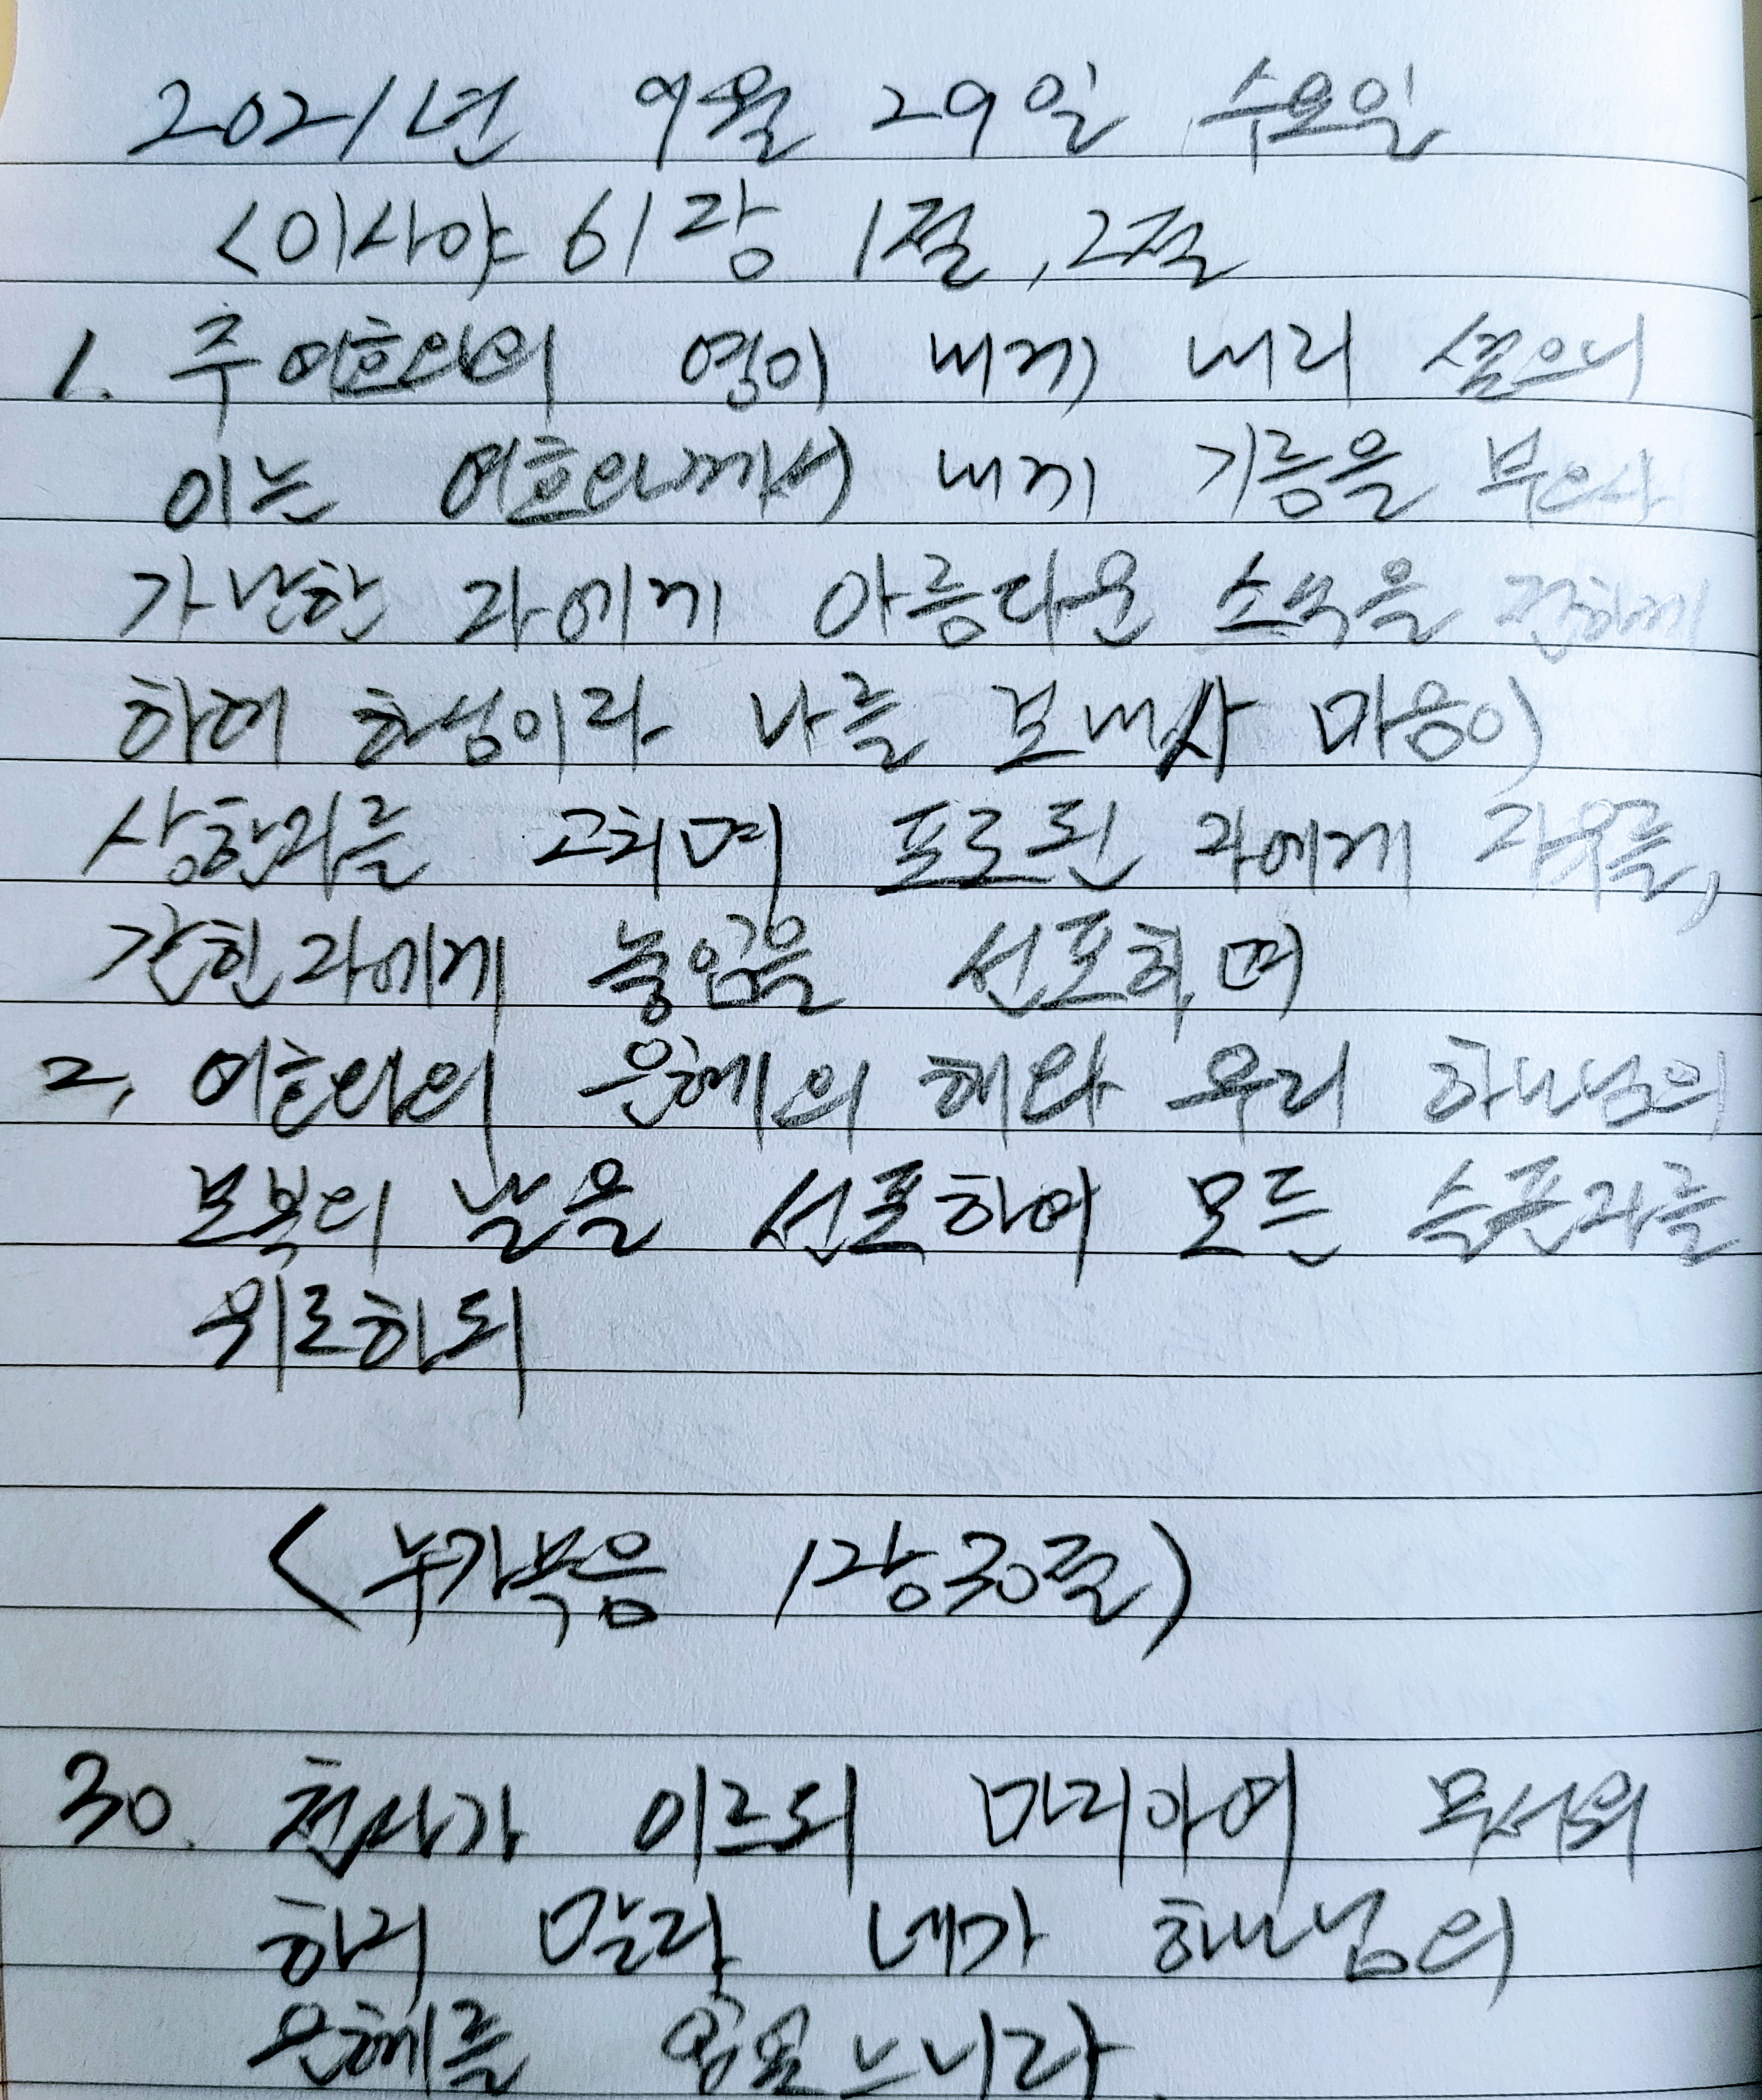 2021년 9월 29일 수요일
<이사야 61장 1절, 2절
1. 주 여호와의 영이 내게 내리 셨으니
이는 여호와께서 내게 기름을 부으사
가난한 자에게 아름다운 소식을 전하게
하려 하심이라 나를 보내사 마음이
상한자를 고치며 포로된 자에게 자유를,
갇힌자에게 놓임을 선포하며
2, 여호와의 은혜의 해와 우리 하나님의
보복의 날을 선포하여 모든 슬픈자를
위로하되
<누가복음 1장30절)
30. 천사가 이르되 마리아여 무서워
하지 말라 네가 하나님의
은혜를 입었느니라.